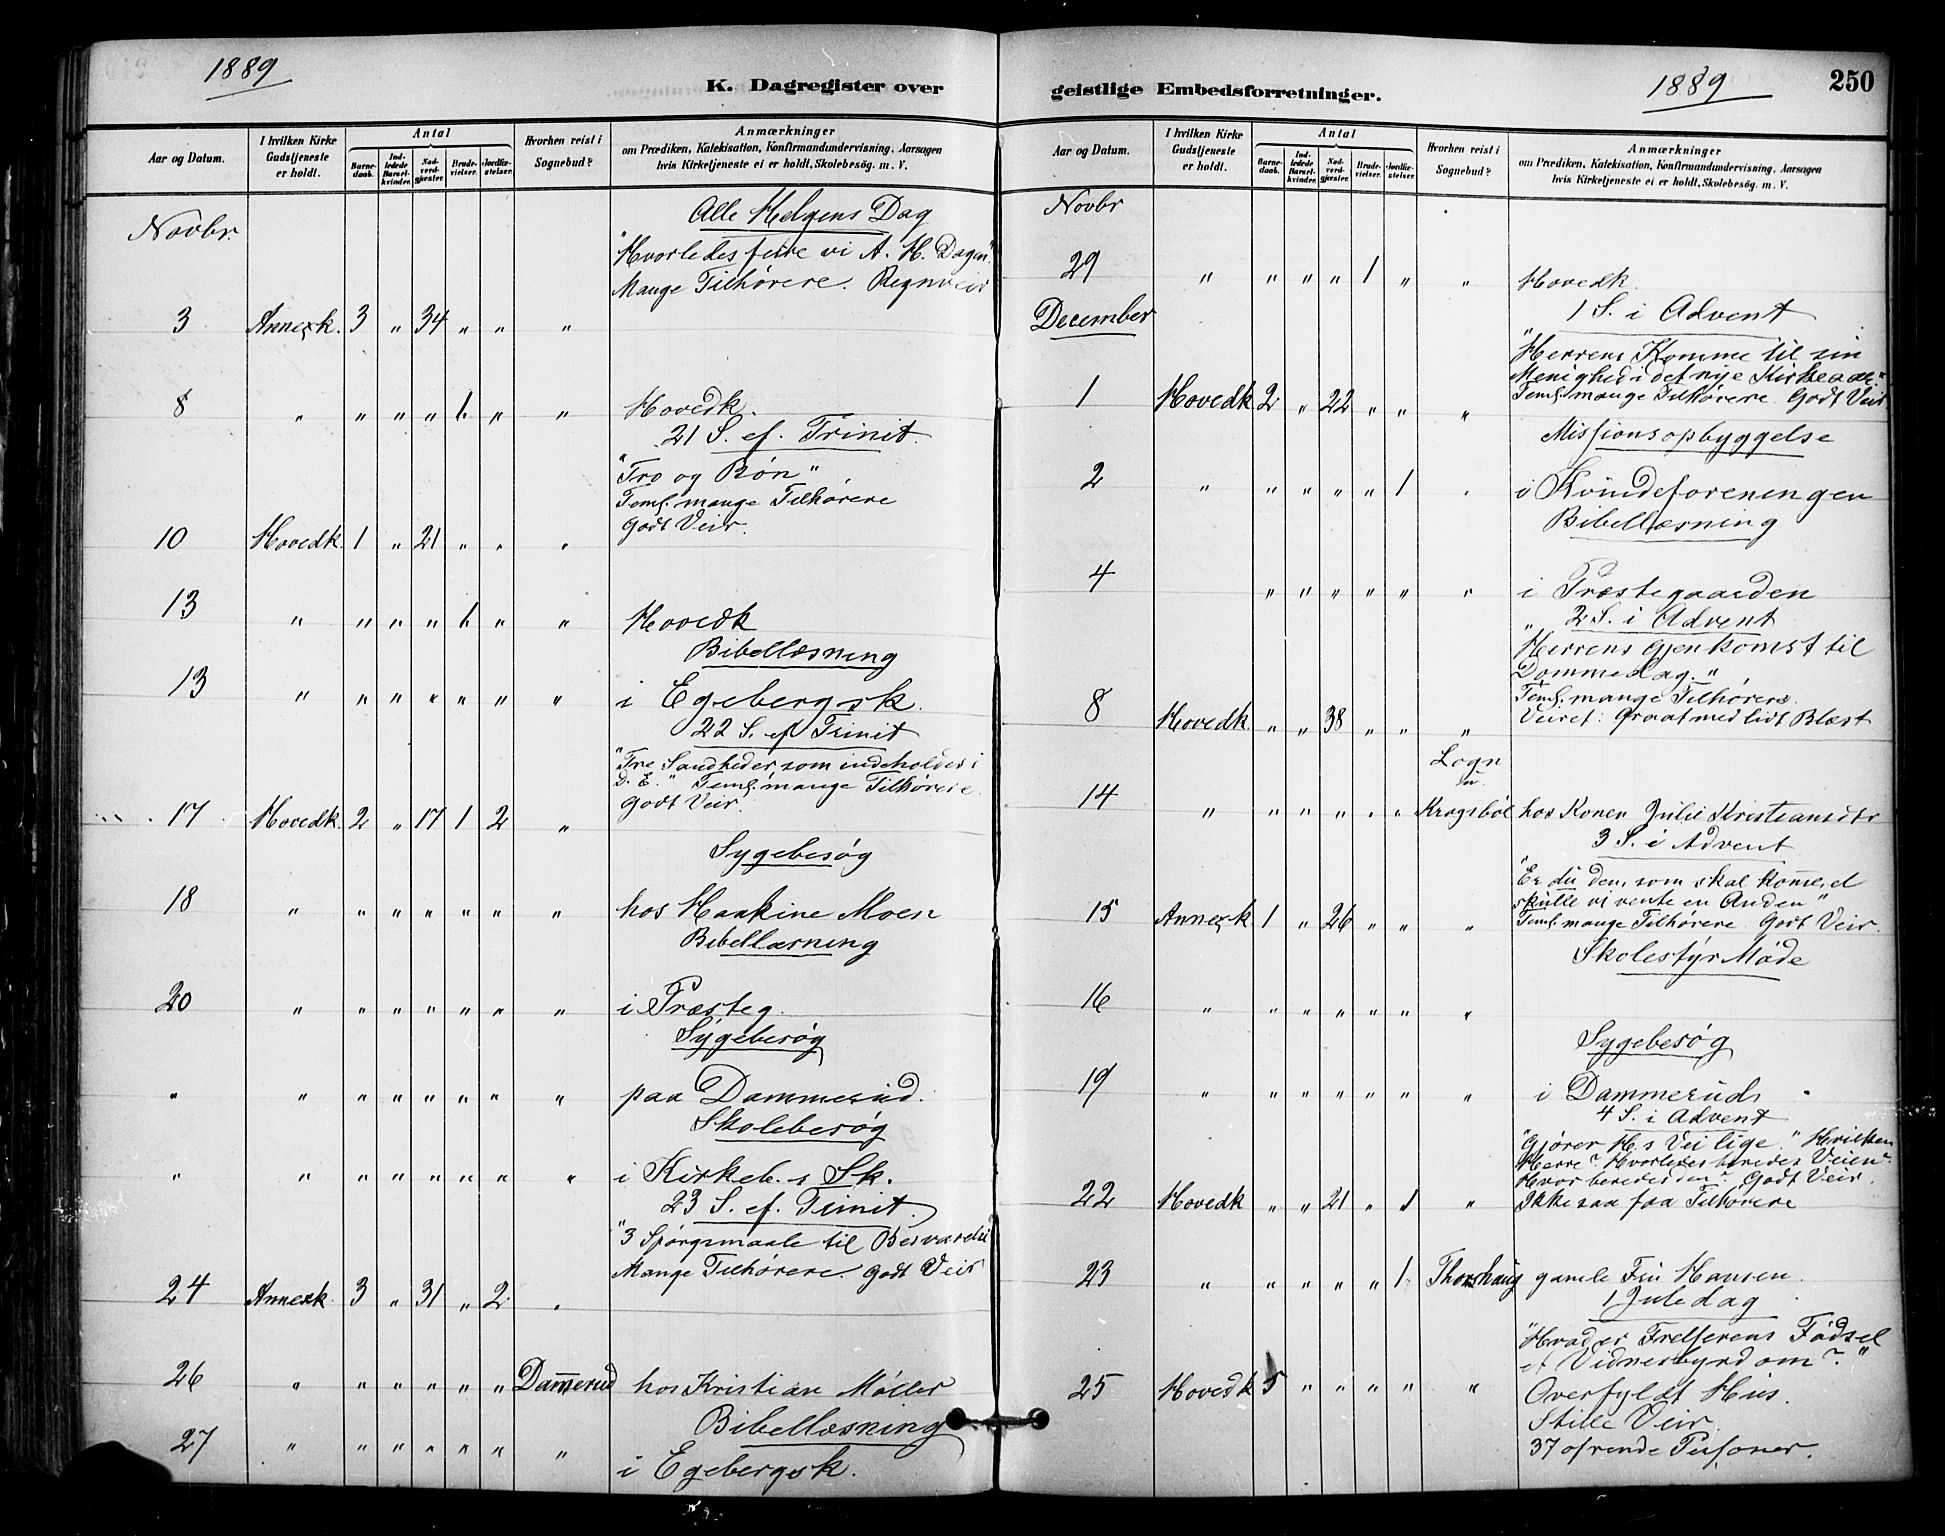 1889
K. Dagregister over
Aar og Datum.
I hvilken Kirke Gudstjeneste er holdt.
Antal
Barnedaab.
Indledede Barselkvinder.
Nadverdgjæster.
Brudevielser.
Jordfæstelser.
Hvorhen reist i Sognebud?
Anmærkninger
om Prædiken, Katekisation, Konfirmandundervisning, Aarsagen
hvis Kirketjeneste ei er holdt, Skolebesøg m. V.
Novbr.
Alle Helgens Dag
"Hvorledes feire vi A. H. Dagen"
Mange Tilhørere. Regnveir
3 Annexk. 3 " 34 " " "
8 " " " " 1 " " Hovedk.
21 S. ef. Trinit.
"Tro og Bøn"
Teml. mange Tilhørere
Godt Veir.
10 Hovedk. 1 " 21 " " "
13 " " " " 1 " " Hovedk
Bibellæsning
13 " " " " " " " i Egebergsk.
22 S. ef Trinit
"Tre Sandheder som indeholdes i
D. E." Teml. mange Tilhørere.
Godt Veir.
17 Hovedk. 2 " 17 1 2 "
Sygebesøg
18 " " " " " " " hos Haakine Moen
Bibellæsning
20 " " " " " " " i Præsteg.
Sygebesøg
" " " " " " " " paa Dammerud.
Skolebesøg
" " " " " " " " i Kirkeb. s Sk.
23 S. ef. Trinit.
"3 Spørgsmaale til Besvarelse
Mange Tilhørere. Godt Veir
24 Annexk. 3 " 31 " 2 "
26 " " " " " " Dam̄erud hos Kristian Møller
Bibellæsning
27 " " " " " " " i Egebergsk.
geistlige Embedsforretninger.
1889
250
Aar og Datum.
I hvilken Kirke Gudstjeneste er holdt.
Antal
Barnedaab.
Indledede Barselkvinder.
Nadverdgjæster.
Brudevielser.
Jordfæstelser.
Hvorhen reist i Sognebud?
Anmærkninger
om Prædiken, Katekisation, Konfirmandundervisning, Aarsagen
hvis Kirketjeneste ei er holdt, Skolebesøg m. V.
Novbr
29 " " " " 1 " " Hovedk.
December
1 S. i Advent
"Herrens Komme til sin
Menighed i det nye Kirkeaar."
Teml. mange Tilhørere. Godt Veir
1 Hovedk 2 " 22 " " "
Missionsopbyggelse
2 " " " " " 1 " i Kvindeforeningen
Bibellæsning
4 " " " " " " i Præstegaarden
2 S. i Advent
"Herrens Gjenkomst til
Dommedag."
Teml. mange Tilhørere.
Veiret: Graat med lidt Blæst
8 Hovedk. " " 38 " " "
Logn
u.
14 " " " " " " Kragsbøl hos Konen Julie Kristiansdtr
3 S. i Advent
"Er du den, som skal kom̄e, el
skulle vi vente en Anden"
Teml. mange Tilhørere. Godt Veir.
15 Annexk 1 " 26 " " "
Skolestyr Møde
16 " " " " " " "
Sygebesøg
19 " " " " " " " i Dammerud.
4 S. i Advent
"Gjører H.s Vei lige." Hvilken
Herre? Hvorledes beredes Veien?
Hvor beredes den? Godt Veir.
22 Hovedk " " 21 " 1 " Ikke saa faa Tilhørere
23 " " " " " 1 Thorshaug gamle Fru Hansen.
1 Juledag
"Hvad er Frelserens Fødsel
et Vidnesbyrd om?"
25 Hovedk 5 " " " " " Overfyldt Hus.
Stille Veir.
37 ofrende Personer.